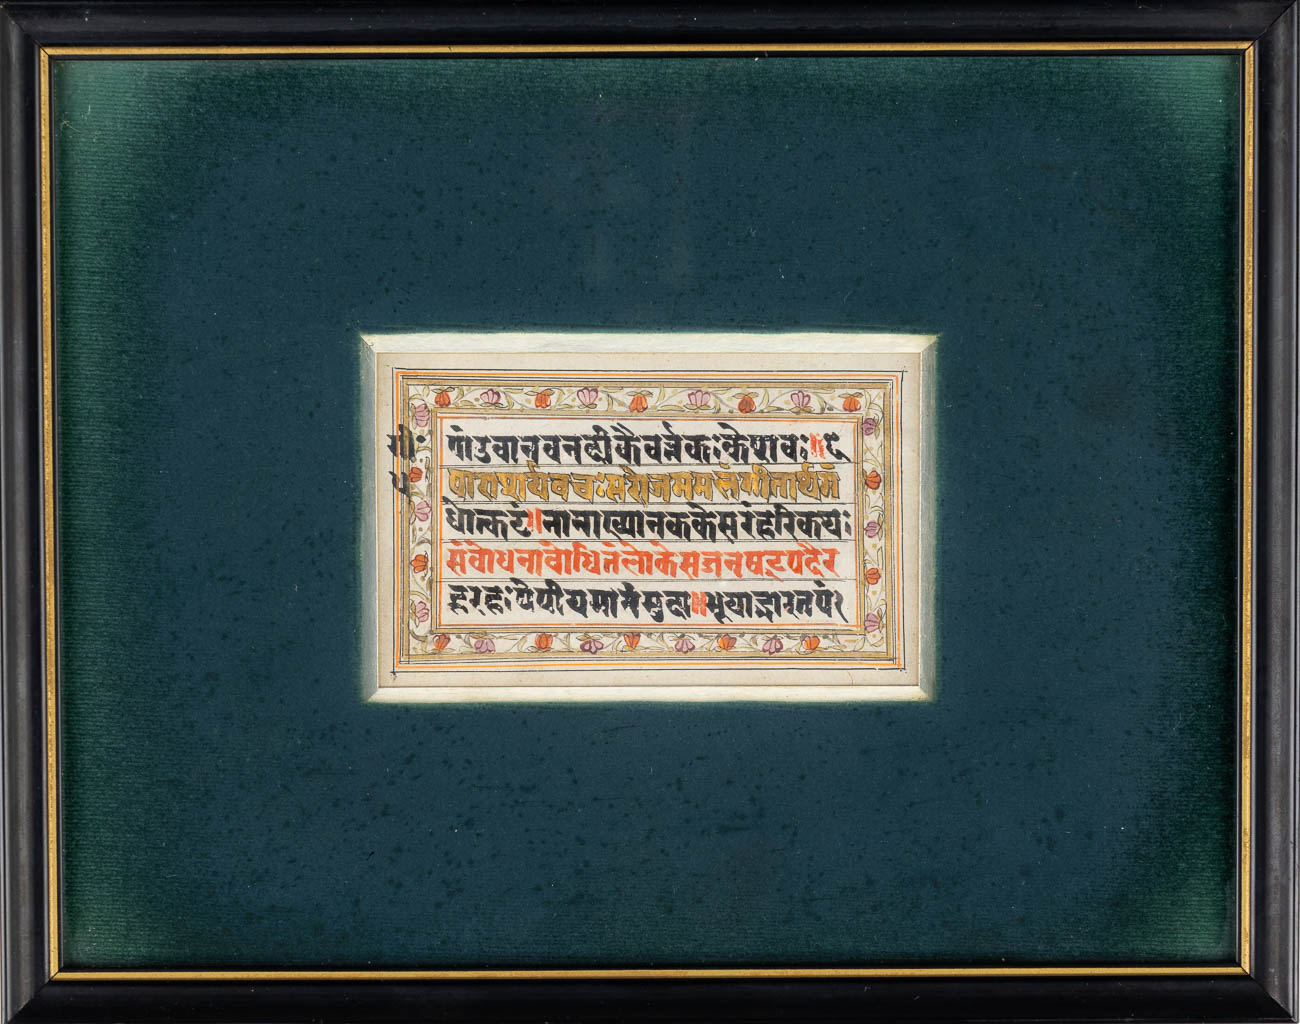 गीः
५
पांडवानवनदीकैवर्त्तकःकेशवः॥६
पाराशर्यवचःसरोजममलंगीतार्थगं
धोत्कटं॥नानाख्यानककेसरंहरिकथः
संबोधनाबोधितंलोकेसज्जनषट्पदैर
हरहःपेपीयमानंमुदा॥भूयाद्भारतपं१